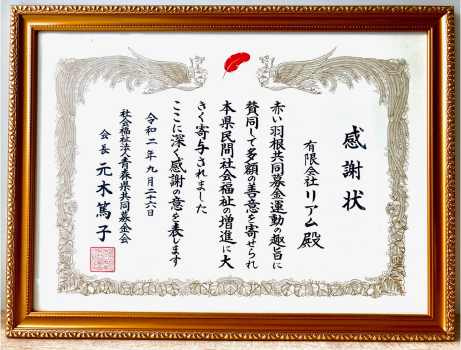 感謝状
有限会社リアム殿
赤い羽根共同募金運動の趣旨に
賛同して多額の善意を寄せられ
本県民間社会福祉の増進に大
きく寄与されました
ここに深く感謝の意を表します
令和二年九月二十六日
社会福祉法人青森県共同募金会
会長 元木篤子